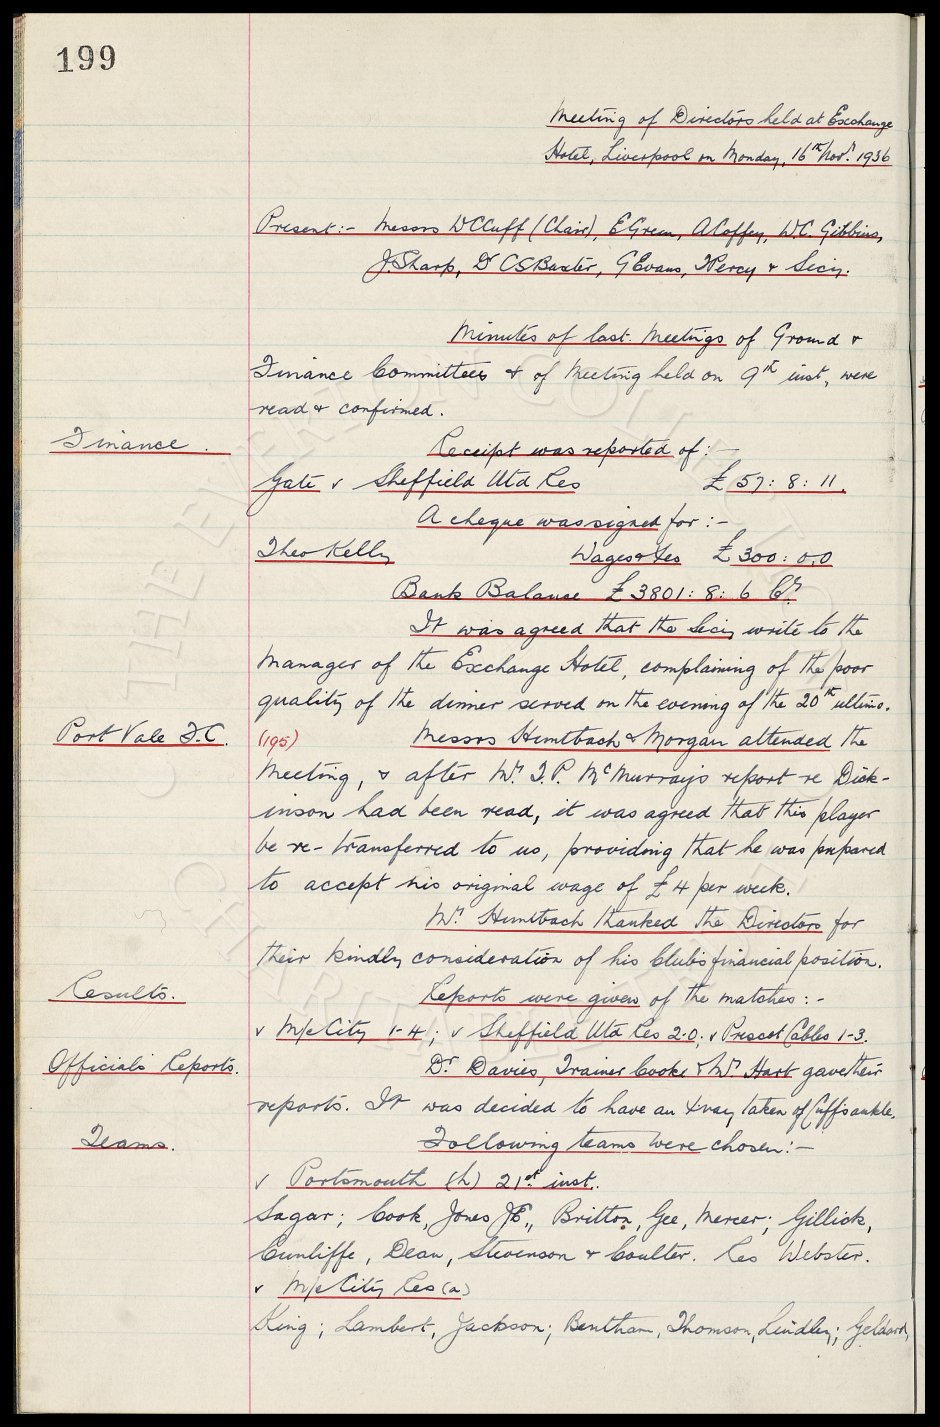 199
Meeting of Directors held at Exchange
Hotel, Liverpool on Monday, 16th Novr. 1936
Present:- Messrs W C Cuff (Chair), E Green, A Coffey, W.C. Gibbins,
J Sharp, Dr C S Baxter, G Evans, T Percy & Secy.
Minutes of last Meetings of Ground &
Finance Committees & of Meeting held on 9th inst, were
read & confirmed.
Finance.
Receipt was reported of:-
Gate v Sheffield Utd Res £57: 8: 11.
A cheque was signed for:-
Theo Kelly Wages & Fes £300: 0.0
Bank Balance £3801: 8: 6 Cr.
It was agreed that the Secy write to the
Manager of the Exchange Hotel, complaining of the poor
quality of the dinner served on the evening of the 20th ultimo.
Port Vale F.C. (195) Messrs Huntbach & Morgan attended the
Meeting, & after Mr. T.P. McMurray's report re Dick-
inson had been read, it was agreed that this player
be re-transferred to us, providing that he was prepared
to accept his original wage of £4 per week.
Mr. Huntbach thanked the Directors for
their kindly consideration of his Club's financial position.
Results. Reports were given of the matches:-
v M/c City 1-4; v Sheffield Utd Res 2-0; v Prescot Cables 1-3.
Officials Reports. Dr. Davies, Trainer Cooke & Mr Hart gave their
reports. It was decided to have an Xray taken of Cuff's ankle.
Teams. Following teams were chosen:-
v Portsmouth (h) 21st inst.
Sagar; Cook, Jones J E., Britton, Gee, Mercer; Gillick,
Cunliffe, Dean, Stevenson & Coulter. Res Webster.
v M/c City Res (a)
King; Lambert, Jackson; Bentham, Thomson, Lindley; Geldard,
© THE EVERTON COLLECTION CHARITABLE TRUST